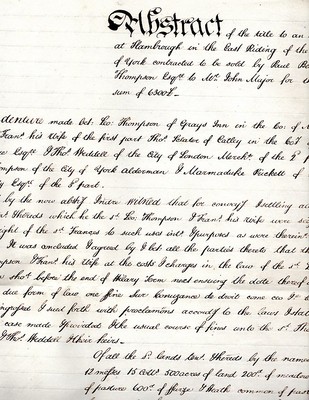 Abstract of the title to an
at Flambrough in the East Riding of the
of York contracted to be sold by Paul
Thompson Esqre to Mr. John Major for the
sum of 6300£
denture made bet: Tho: Thompson of Grays Inn in the Co: of
Fran: his Wife of the first part Tho: of Catley in the Co:
Esqr. & Tho: Weddell of the City of London Mercht. of the 2d
mpson of the City of York Alderman & Marmaduke Rickett of
Esqr. of the 3d part.
by the now abstd. Indre. witnessed that for convey & settling
Thereds which the sd. Tho: Thompson & Fran: his Wife were
ight of the sd. Frances to such uses & purposes as were therein
It was concluded & agreed by & bet all the parties thereto that
mpson & Fran: his Wife at the costs & changes in the law of the sd.
shod. before the end of Hilary Term next ensuing the date thereof
due form of law one fine Sur Conuzance de droit come ceo
ingrossed & sued forth with proclamons accordg. to the laws &
case made & provided & the usual course of fines unto the sd.
& Tho: Weddell & their heirs.
Of all the sd. Lands & Thereds by the names
12 messes 15 cotts 500 acres of land 200 of meadow
of pasture 600 of ffurze & Heath common of past